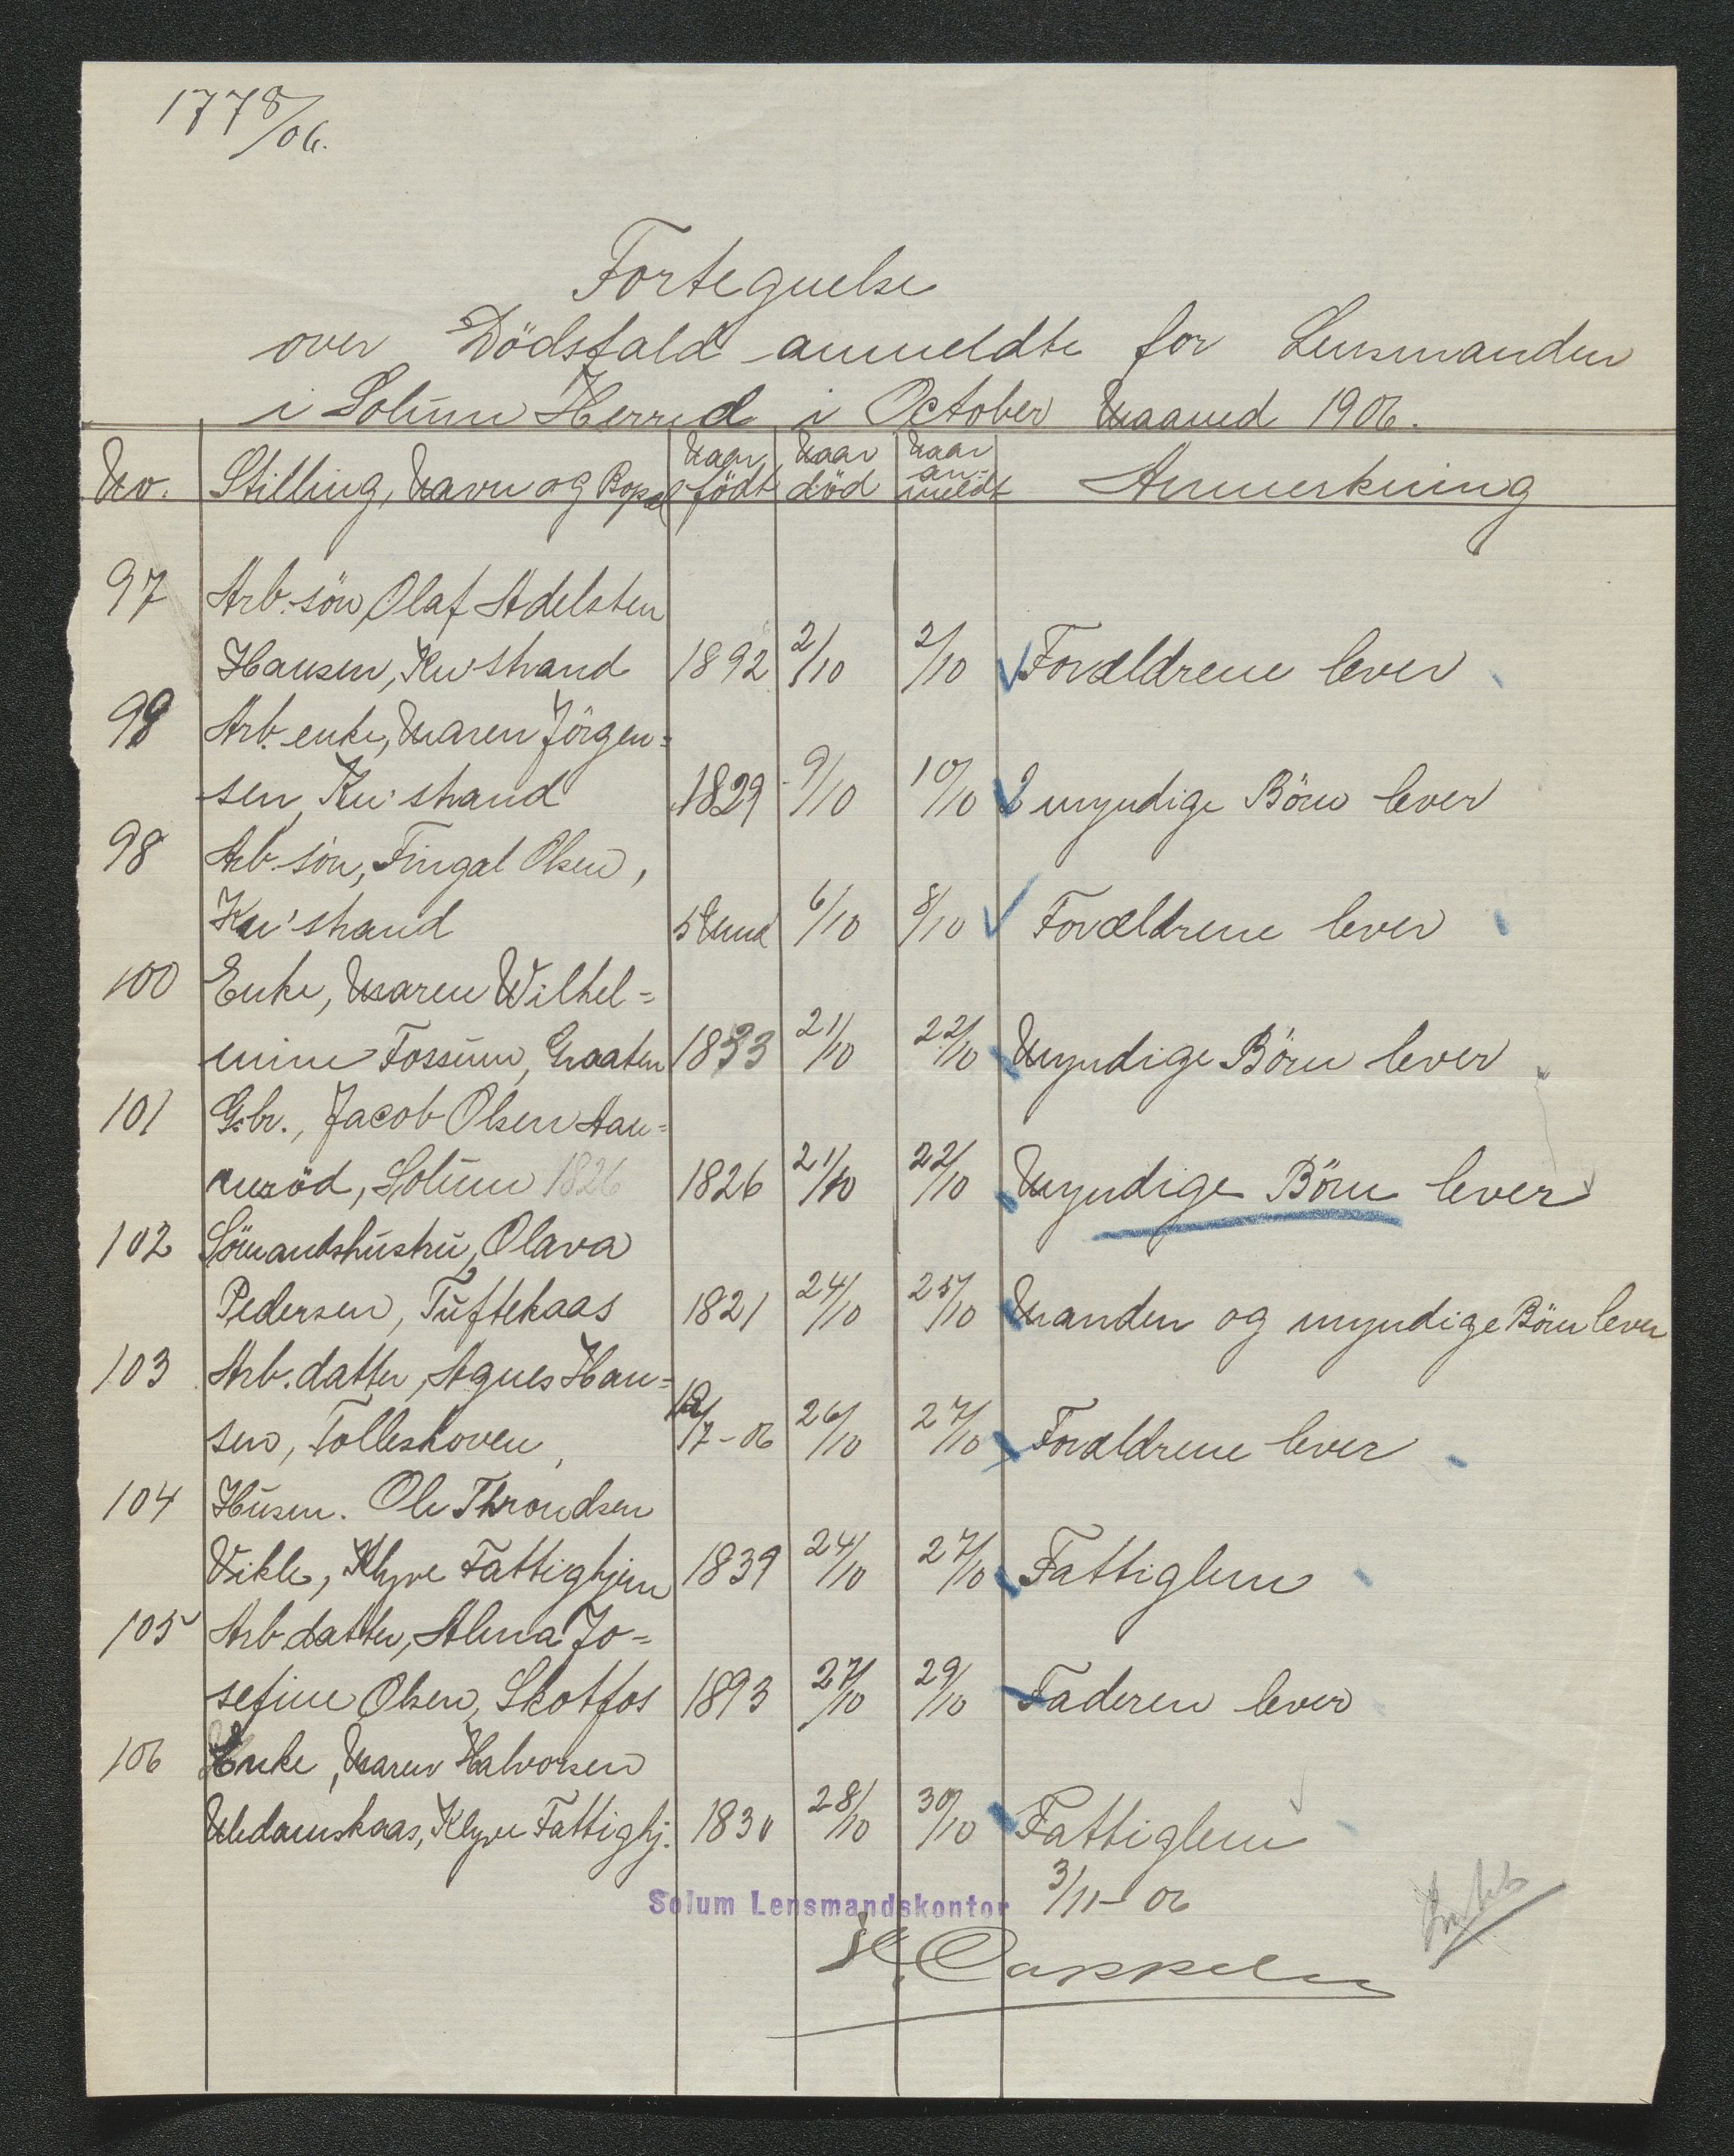 1778/06.
Fortegnelse
over Dödsfald anmeldte for Lensmanden
i Solum Herred i October Maaned 1906.
No. Stilling, Navn og Bopæl Naar födt Naar död Naar anmeldt Anmerkning
97 Arb. sön, Olaf Adelsten
Hansen, Kn:strand 1892 2/10 2/10 Forældrene lever
99 Arb. enke, Maren Jörgen=
sen, Kn:strand 1829 9/10 10/10 2 myndige Börn lever
98 Arb. sön, Fingal Olsen,
Kn:strand 5 Mnd 6/10 8/10 Forældrene lever
100 Enke, Maren Wilhel=
mine Fossum, Graaten 1833 21/10 22/10 Myndige Börn lever
101 Gbr., Jacob Olsen Aan=
neröd, Solum 1826 1826 21/10 22/10 Myndige Börn lever
102 Sömandshustru, Olava
Pedersen, Tuftekaas 1821 24/10 25/10 Manden og myndige Börn lever
103 Arb. datter, Agnes Han=
sen, Tolleskoven, 12/7-06 26/10 27/10 Forældrene lever
104 Husm. Ole Throndsen
Vikle, Klyve Fattighjem 1839 24/10 27/10 Fattiglem
105 Arb. datter, Alma Jo=
sefine Olsen, Skotfos 1893 27/10 29/10 Faderen lever
106 Enke, Maren Halvorsen
Medamskaas, Klyve Fattighj. 1830 28/10 30/10 Fattiglem
Solum Lensmandskontor 3/11-06
Cappelen